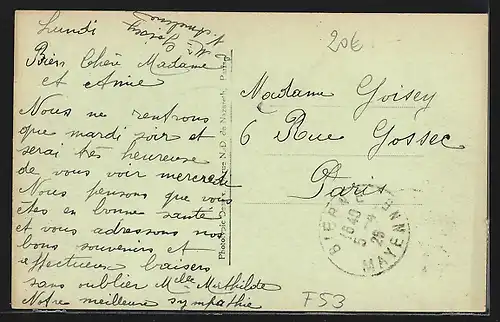 Lundi
Bien Chère Madame
et Amie
Nous ne rentrons
que mardi soir et
serai très heureuse
de vous voir mercredi
Nous pensons que vous
êtes en bonne santé
et vous adressons nos
bons souvenirs et
affectueux baisers
sans oublier Mlle Mathilde
Notre meilleure sympathie
N.-D. de Nazareth, Paris
20€
Madame Goisey
6 Rue Gossec
Paris
MAYENNE
F53